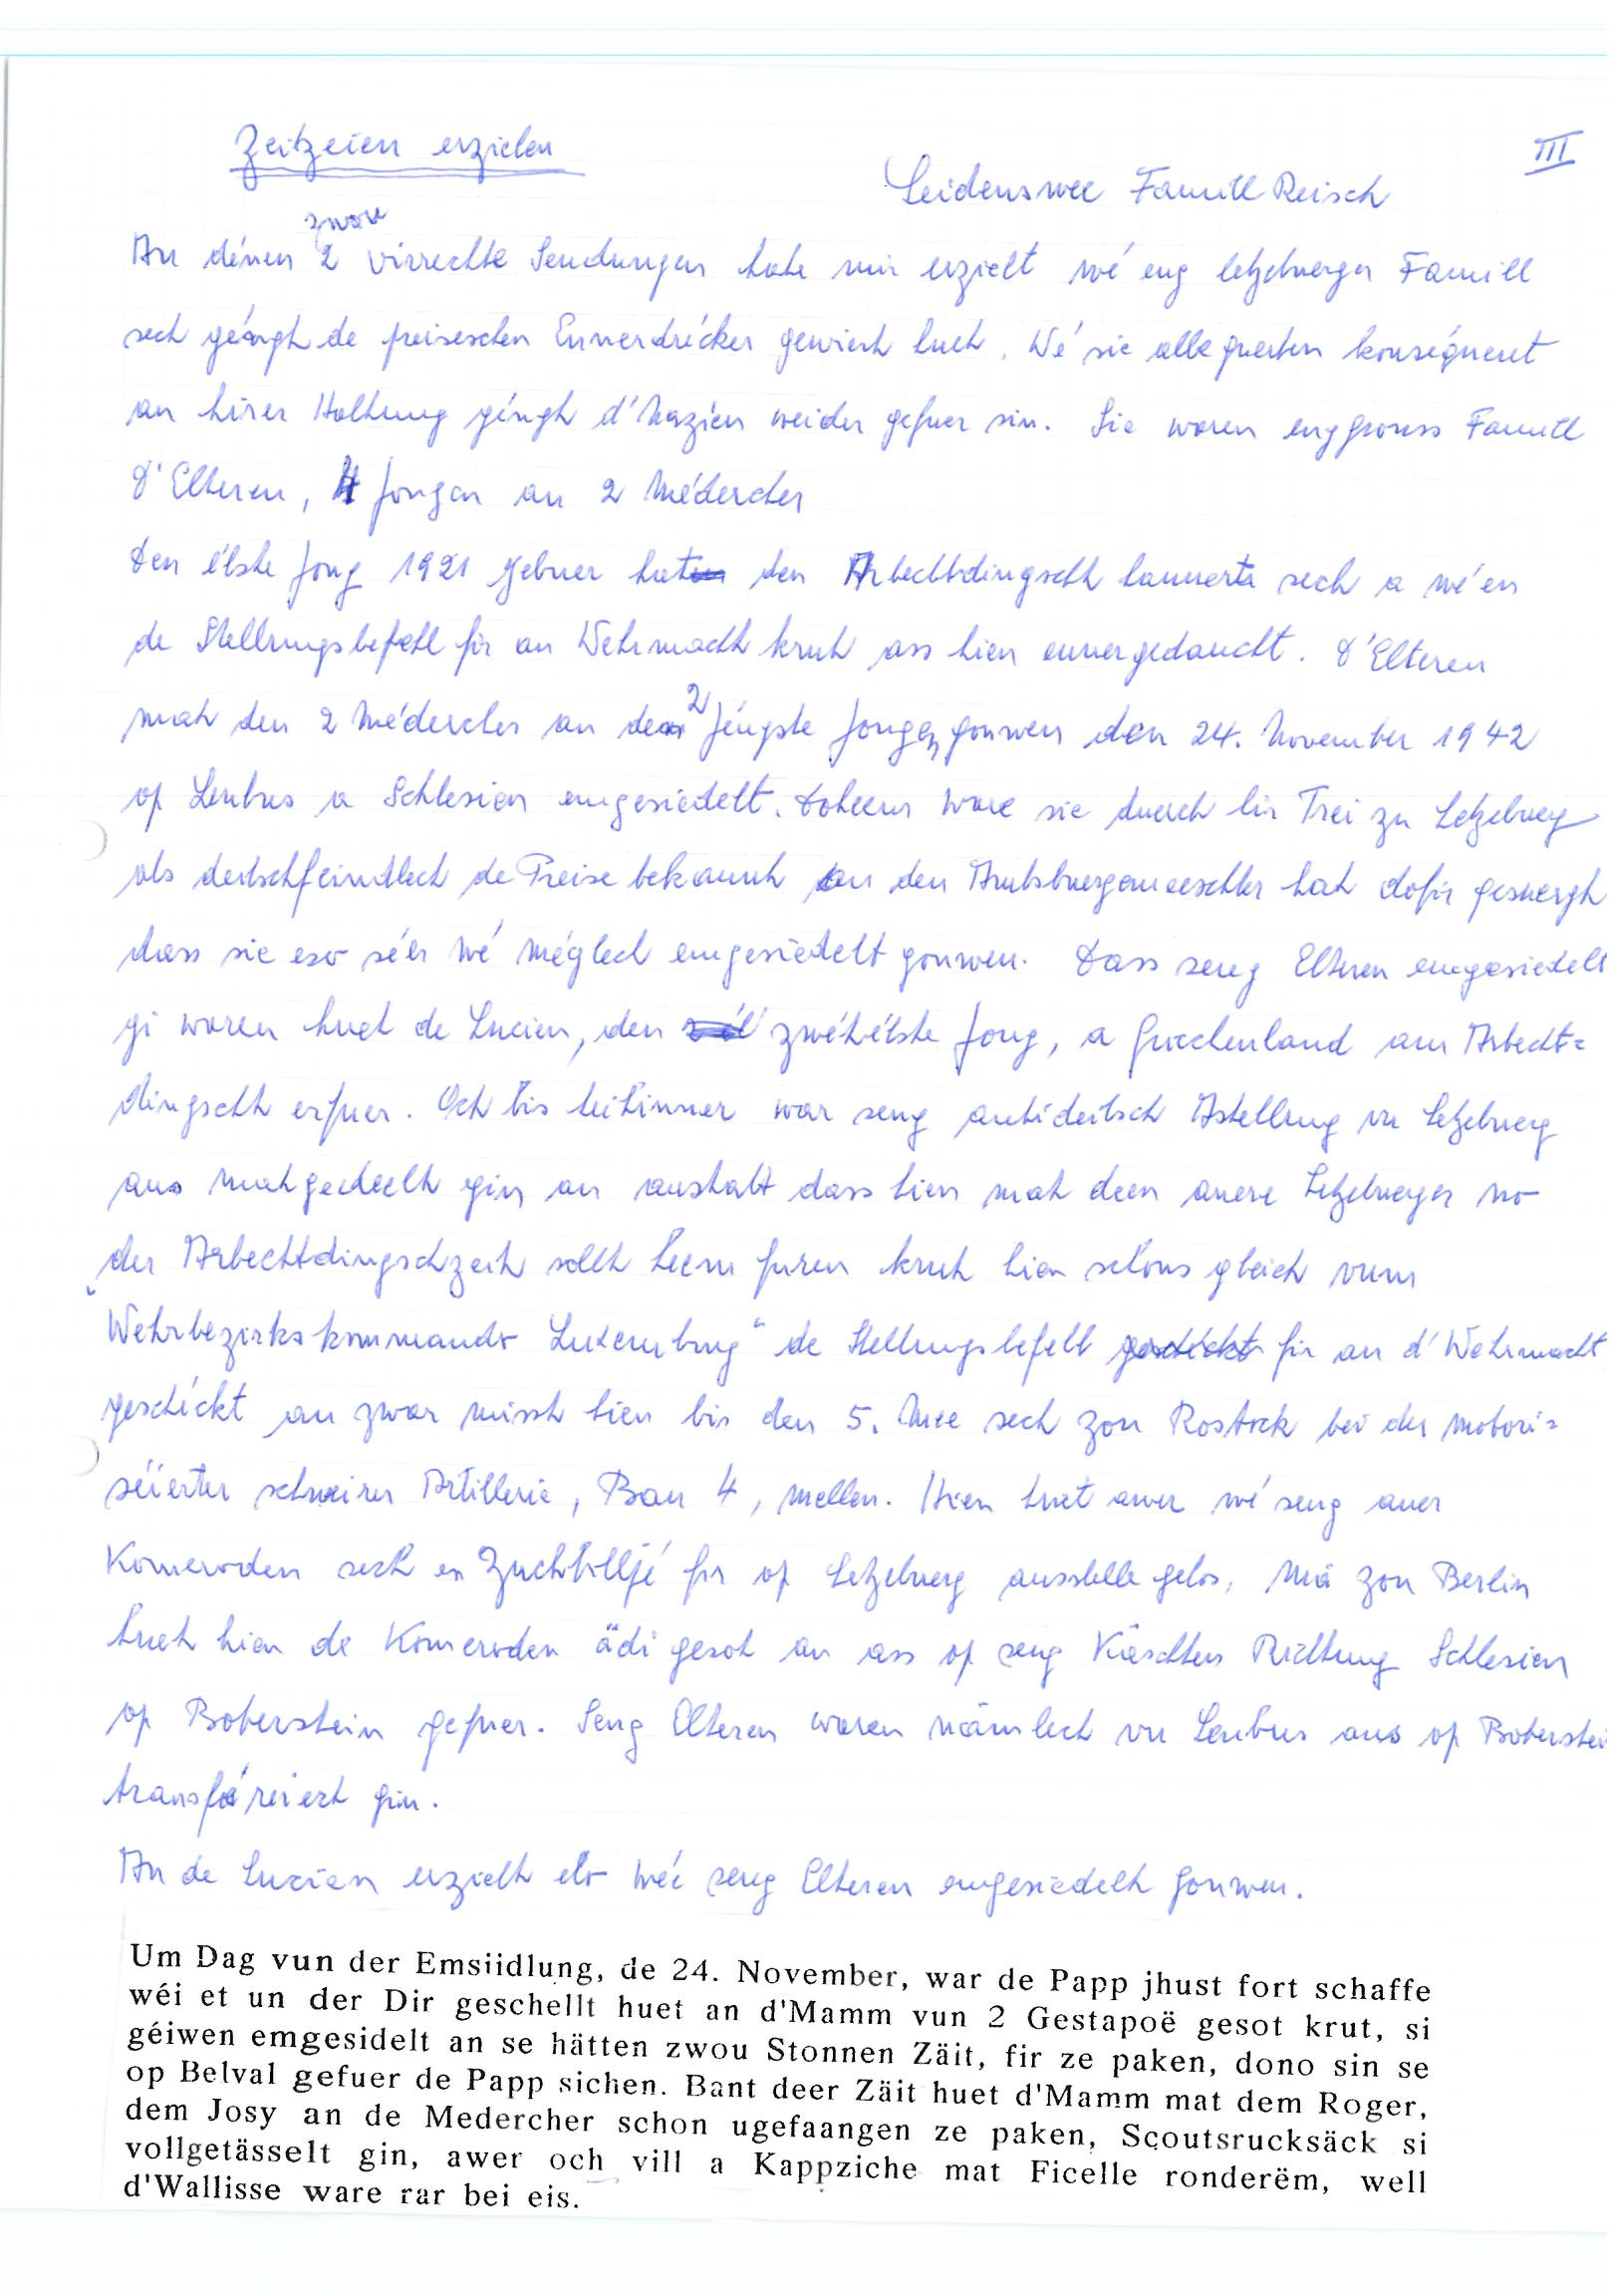 Zeitzeien erzielen
III
Leidenswee Famill Reisch
zwou
An dénen 2 virrechte Sendungen hate mir erzielt wé eng letzebuerger Famill
sech géingh de preiseschen Ennerdrécker gewiert huet. Wé sie alle querten konsequent
an hirer Haltung géngh d'Nazien weider gefuer sin. Sie woren eng grouss Famill
D'Elteren, 4 Jongen an 2 Médercher
Den élste Jong 1921 gebuer hat den Arbechtdingscht hannerte sech a wé en
de Stellungsbefehl fir an Wehrmacht kruh ass hien ennergedaucht. D'Elteren
mat den 2 Médercher an de 2 jéngste Jongen gouwen den 24. November 1942
op Leubus a Schlesien emgesiedelt. Doheem ware sie duerch hir Trei zu Letzebuerg
als deitschfeindlech de Preise bekannt an den Amtsbuergermeeschter hat dofir gesuergt
dass sie eso séier wé méglech emgesiedelt gouwen. Dass seng Elteren emgesiedelt
gi woren huet de Lucien, den zwéhélste Jong, a Griechenland am Arbecht=
dingscht erfuer. Och bis heihinner war seng antideitsch Astellung vu Letzebuerg
aus matgedeelt gin an anstatt dass hien mat deen anere Letzebuerger no
der Arbechtdingschzeit sollt heem furen kruh hien schons gleich vum
"Wehrbezirkskommando Luxemburg" de Stellungsbefehl geschéckt fir an d'Wehrmacht
geschéckt an zwar misst hien bis den 5. Mee sech zou Rostock bei der motori=
séierter schwéirer Artillerie, Bau 4, mellen. Hien huet awer wé seng aner
Komeroden sech en Zuchbilljé fir op Letzebuerg ausstelle gelos, mä zou Berlin
huet hien de Komeroden ädi gesot an ass op seng Käschten Richtung Schlesien
op Boberstein gefuer. Seng Elteren woren nämlech vu Leubus aus op Boberstei
transferéiert gin.
An de Lucien erzielt elo wéi seng Elteren emgesiedelt gouwen.
Um Dag vun der Emsiidlung, de 24. November, war de Papp jhust fort schaffe
wéi et un der Dir geschellt huet an d'Mamm vun 2 Gestapoë gesot krut, si
géiwen emgesidelt an se hätten zwou Stonnen Zäit, fir ze paken, dono sin se
op Belval gefuer de Papp sichen. Bant deer Zäit huet d'Mamm mat dem Roger,
dem Josy an de Medercher schon ugefaangen ze paken, Scoutsrucksäck si
vollgetässelt gin, awer och vill a Kappziche mat Ficelle ronderëm, well
d'Wallisse ware rar bei eis.